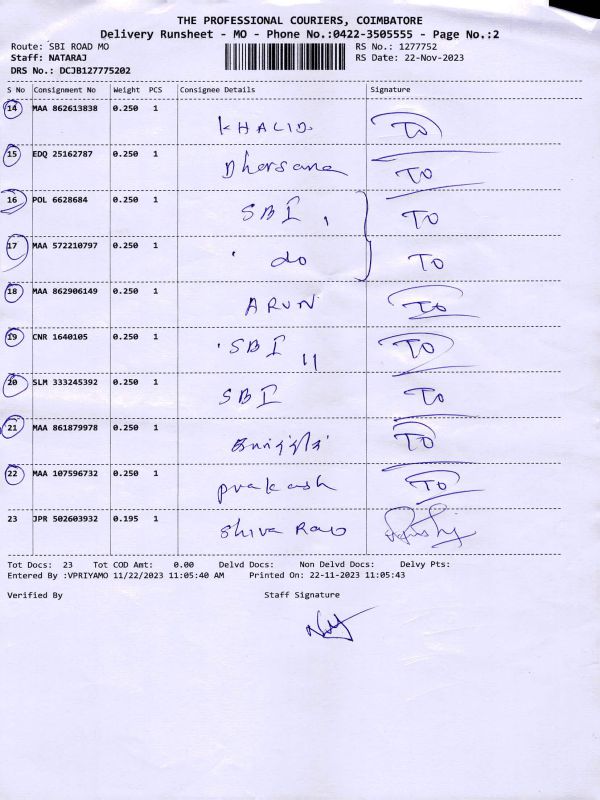 THE PROFESSIONAL COURIERS, COIMBATORE
Delivery Runsheet - MO - Phone No.:0422-3505555 - Page No.:2
Route: SBI ROAD MO RS No.: 1277752
Staff: NATARAJ RS Date: 22-Nov-2023
DRS No.: DCJB127775202
S No Consignment No Weight PCS Consignee Details Signature
14 MAA 862613838 0.250 1 KHALID TO
15 EDQ 25162787 0.250 1 Dharsana TO
16 POL 6628684 0.250 1 SBI TO
17 MAA 572210797 0.250 1 do TO
18 MAA 862906149 0.250 1 ARUN TO
19 CNR 1640105 0.250 1 SBI TO
20 SLM 333245392 0.250 1 SBI TO
21 MAA 861879978 0.250 1 TO
22 MAA 107596732 0.250 1 prakash TO
23 JPR 502603932 0.195 1 Shiva Rao
Tot Docs: 23 Tot COD Amt: 0.00 Delvd Docs: Non Delvd Docs: Delvy Pts:
Entered By :VPRIYAMO 11/22/2023 11:05:40 AM Printed On: 22-11-2023 11:05:43
Verified By Staff Signature